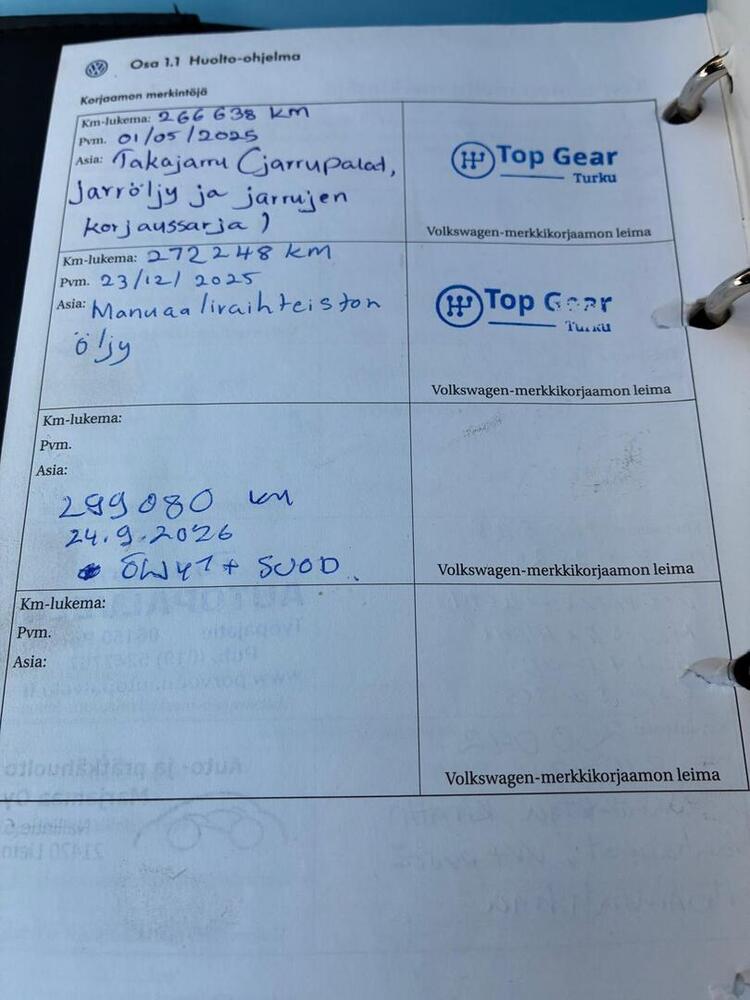 Osa 1.1 Huolto-ohjelma
Korjaamon merkintöjä
Km-lukema: 266 638 km
Pvm. 01/05/2025
Asia: Takajarru (jarrupalat,
jarröljy ja jarrujen
korjaussarja)
Top Gear
Turku
Volkswagen-merkkikorjaamon leima
Km-lukema: 272248 km
Pvm. 23/12/2025
Asia: Manuaalivaihteiston
öljy
Top Gear
Turku
Volkswagen-merkkikorjaamon leima
Km-lukema:
Pvm.
Asia:
299080 km
24.9.2026
ÖLJYT + SUOD.
Volkswagen-merkkikorjaamon leima
Km-lukema:
Pvm.
Asia:
Volkswagen-merkkikorjaamon leima